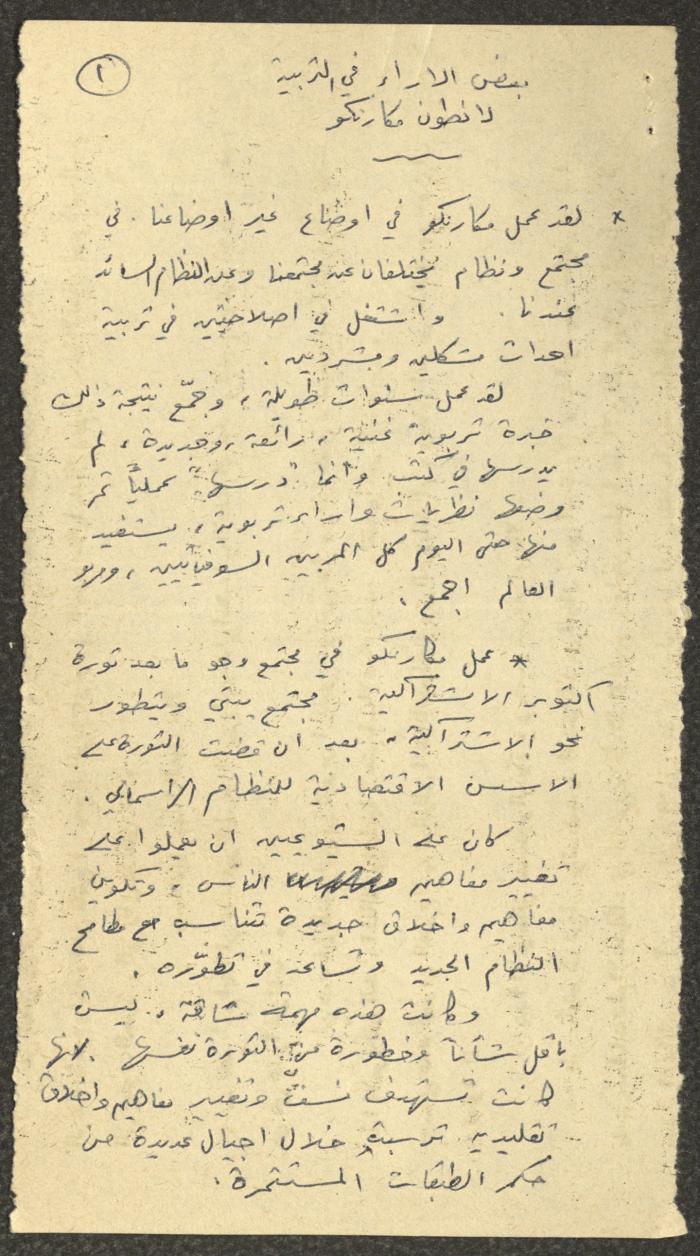 ١
بعض الاراء في التربية
لانطون مكارنكو
* لقد عمل مكارنكو في اوضاع غير اوضاعنا. في
مجتمع ونظام يختلفان عن مجتمعنا وعن النظام السائد
عندنا. واشتغل في اصلاحيتين في تربية
احداث مشكلين ومشردين.
لقد عمل سنوات طويلة، وجمّع نتيجة ذلك
خبرة تربوية غنية، رائعة، وجديدة، لم
يدرسها في كتب وانما "درسها" عملياً ثم
وضعها نظريات واراء تربوية، يستفيد
منها حتى اليوم كل المربين السوفياتيين، ومربو
العالم اجمع.
* عمل مكارنكو في مجتمع وجو ما بعد ثورة
اكتوبر الاشتراكية. مجتمع يبني ويتطور
نحو الاشتراكية، بعد ان قضت الثورة على
الاسس الاقتصادية للنظام الرأسمالي.
كان على الشيوعيين ان يعملوا على
تغيير مفاهيم الناس، وتكوين
مفاهيم واخلاق جديدة تتناسب مع مطامح
النظام الجديد وتساعد في تطوّره.
وكانت هذه مهمة شاقة، ليست
باقل شأناً وخطورة من الثورة نفسها. لانها
كانت تستهدف نسف وتغيير مفاهيم واخلاق
تقليدية ترسبت خلال اجيال عديدة من
حكم الطبقات المستثمرة.